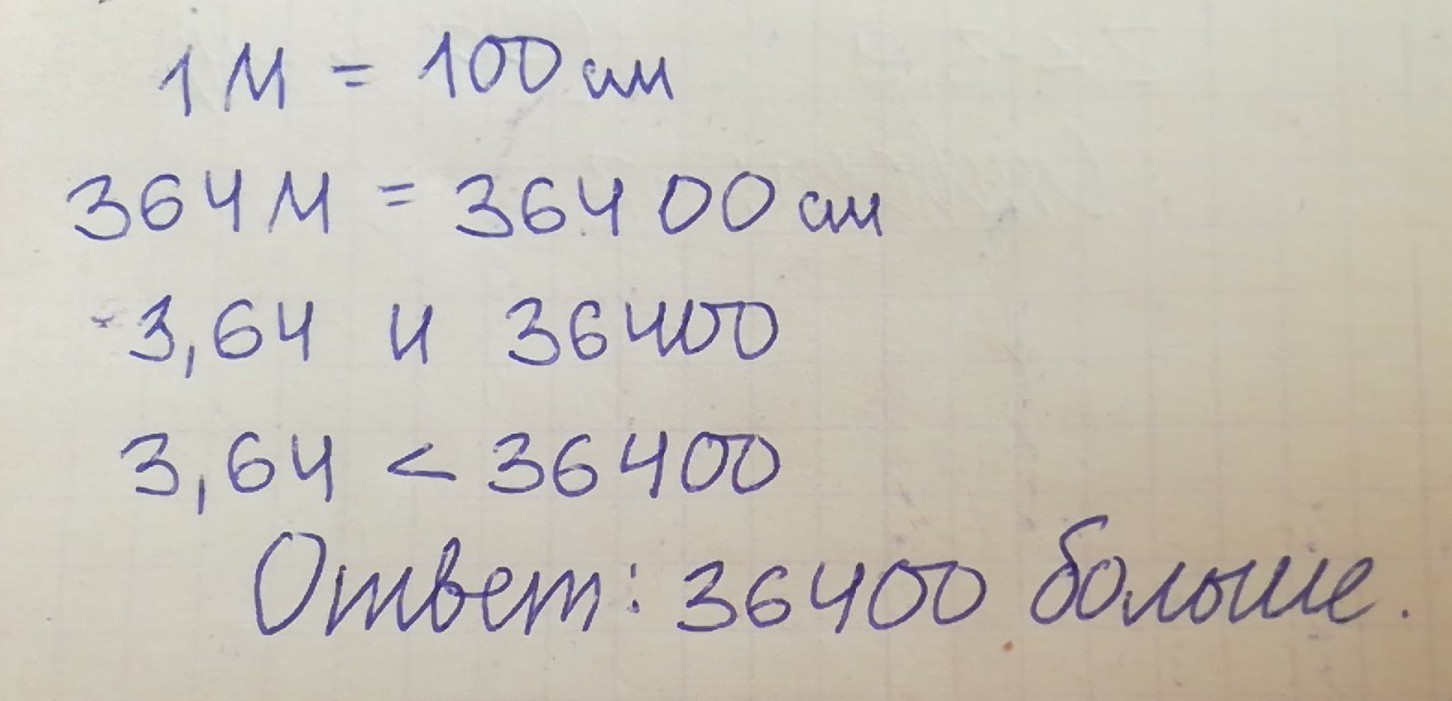 1 м = 100 см
364 м = 36400 см
3,64 и 36400
3,64 < 36400
Ответ: 36400 больше.